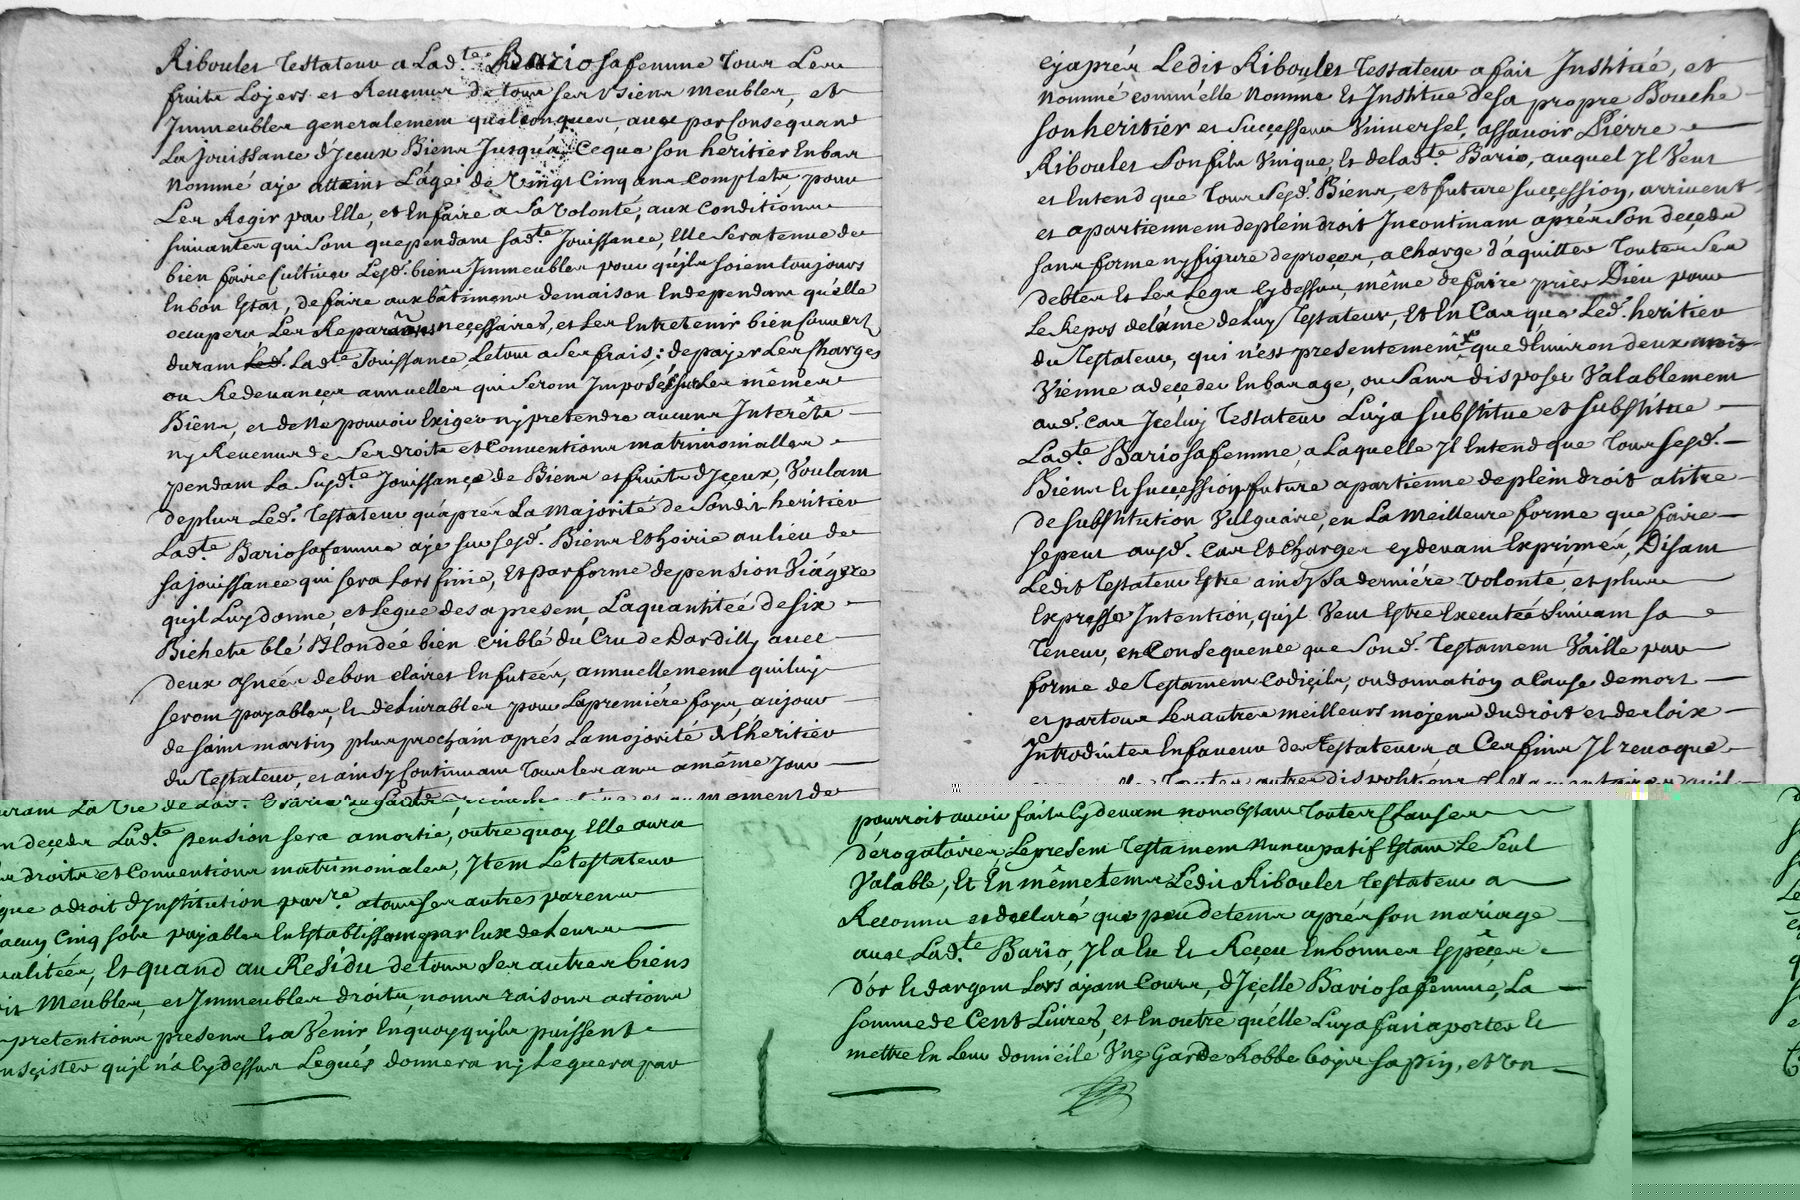 Riboulet Testateur a Lad.te Bario sa femme Tour Les
fruits Loyers et Revenus de tous ses Biens meubles, et
Immeubles generalement quelconques, avec par consequant
La jouissance d'Jceux Biens Jusqu'a ce que son heritier En bas
Nommé aye atteint L'âge de Vingt Cinq ans complets, pour
Les Regir par Elle, et En faire a Sa Volonté, aux Conditions
suivantes qui sont que pendant sad.te Jouissance, Elle sera tenue de
bien faire Cultiver Lesd. biens Immeubles pour qu'jls soient toujours
En bon Estat, de faire aux bâtiments de maison En dependant qu'elle
ocupera Les Reparaõns necessaires, et Les Entretenir bien Couverts
durant Lad.te Jouissance, Le tout a ses frais; de payer Les Charges
ou Redevances annuelles qui seront Imposées sur Les mêmes
Biens, et de Ne pouvoir Exiger ny pretendre aucuns Interêts
ny Revenus de Ses droits et Conventions matrimonialles
pendant La Susd.te Jouissance de Biens et fruits d'Jceux, Voulant
de plus Led. Testateur qu'aprés La Majorité de Sondit heritier
Lad.te Bario sa femme aye sur sesd. Biens Et hoirie au lieu de
sa jouissance qui sera Lors finie, Et par forme de pension Viagere
qu'jl Luy donne, et Legue des a present, La quantitée de six
Bichets blé Blondée bien criblé du Cru de Dardilly avec
deux asnées de bon clairet En futée, annuellement qui luy
seront payables, Et delivrables pour La premiére foys, au jour
de saint martin plus prochain aprés La majorité de L'heritier
du Testateur, et ainsy Continuant Tous les ans a même Jour
durant La Vie de Lad. Bario Legatte et au moment de
n decede Lad.te pension sera amortie, outre quoy Elle aura
droits et Conventions matrimoniales, Jtem Le testateur
gue a droit d'Institution par.re a tous ses autres parens
acun Cinq sols payables En Establissant par Eux de Leurs
ualitées, Et quand au Residu de tous Ses autres biens
it Meubles, et Immeubles droits, noms raisons actions
pretentions presens Et a Venir En quoy qu'jls puissent
nsister qu'jl n'a Cy dessus Legués donnera ny Leguera par
cy aprés Ledit Riboulet Testateur a fait Institué, et
Nommé comm'elle Nomme Et Institue de sa propre Bouche
son heritier et Successeur Universel, assavoir Piérre
Riboulet Son fils Unique, Et de lad.te Bario, auquel Jl Veut
et Entend que Tous Sesd. Biens, et future succession, arrivent
et apartiennent de plein droit Incontinant aprés Son decede
sans forme ny figure de procés, a Charge d'aquitter Toutes Ses
debtes Et Les Legs Cy dessus, même de faire prier Dieu pour
Le Repos de l'âme de Luy Testateur, Et En Cas que Led. heritier
du Testateur, qui n'est presentement que d'Environ deux mois
Vienne a deceder En bas age, ou Sans disposer Valablement
aud. cas Jceluy Testateur Luy a Substitué et Substitue
Lad.te Bario sa femme, a Laquelle Jl Entend que Tous sesd.
Biens Et succession future apartienne de plein droit a titre
de substitution Vulguaire, en La meilleure forme que faire
se peut ausd. cas Et Charges cy devant Exprimés, Disant
Ledit Testateur Estre ainsy Sa derniére Volonté, et plus
Expresse Intention, qu'jl Veut Estre Executée Suivant sa
Teneur, en Consequence que Sond. Testament Vaille par
forme de Testament Codicile, ou donnation a Cause de mort
et par tous Les autres meilleurs moyens du droit et des loix
Introduites En faveur des Testateurs, a Ces fins Jl revoque
Toutes autres dispositions Testamentaires qu'il
pourroit avoir faite Cy devant nonobstant Toutes Clauses
derogatoires, Le present Testament Nuncupatif Estant Le Seul
Valable, Et En même tems Ledit Riboulet Testateur a
Reconnu et declaré que peu de tems aprés son mariage
avec Lad.te Bario, Jl a Eu Et Reçeu En bonnes Espéces
d'or Et d'argent Lors ayant Cours, d'Jcelle Bario sa femme, La
somme de Cent Livres, et En outre qu'elle Luy a fait aporter Et
mettre En Leur domicile Une Garde Robbe boys sapin, et Un